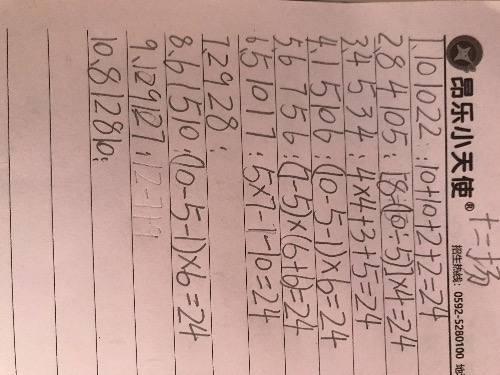 昂乐小天使®
招生热线：0592-5280100
1.10 10 2 2：10+10+2+2=24
2.8 4 10 5：[8-(10÷5)]×4=24
3.4 5 3 4：4×4+3+5=24
4.1 5 10 6：(10-5-1)×6=24
5.6 7 5 6：(7-5)×6+6=24
6.5 10 1 7：5×7-1-10=24
7.2 9 2 8：
8.6 1 5 10：(10-5-1)×6=24
9.12 9 12 7：12-7
10.8 12 8 10：